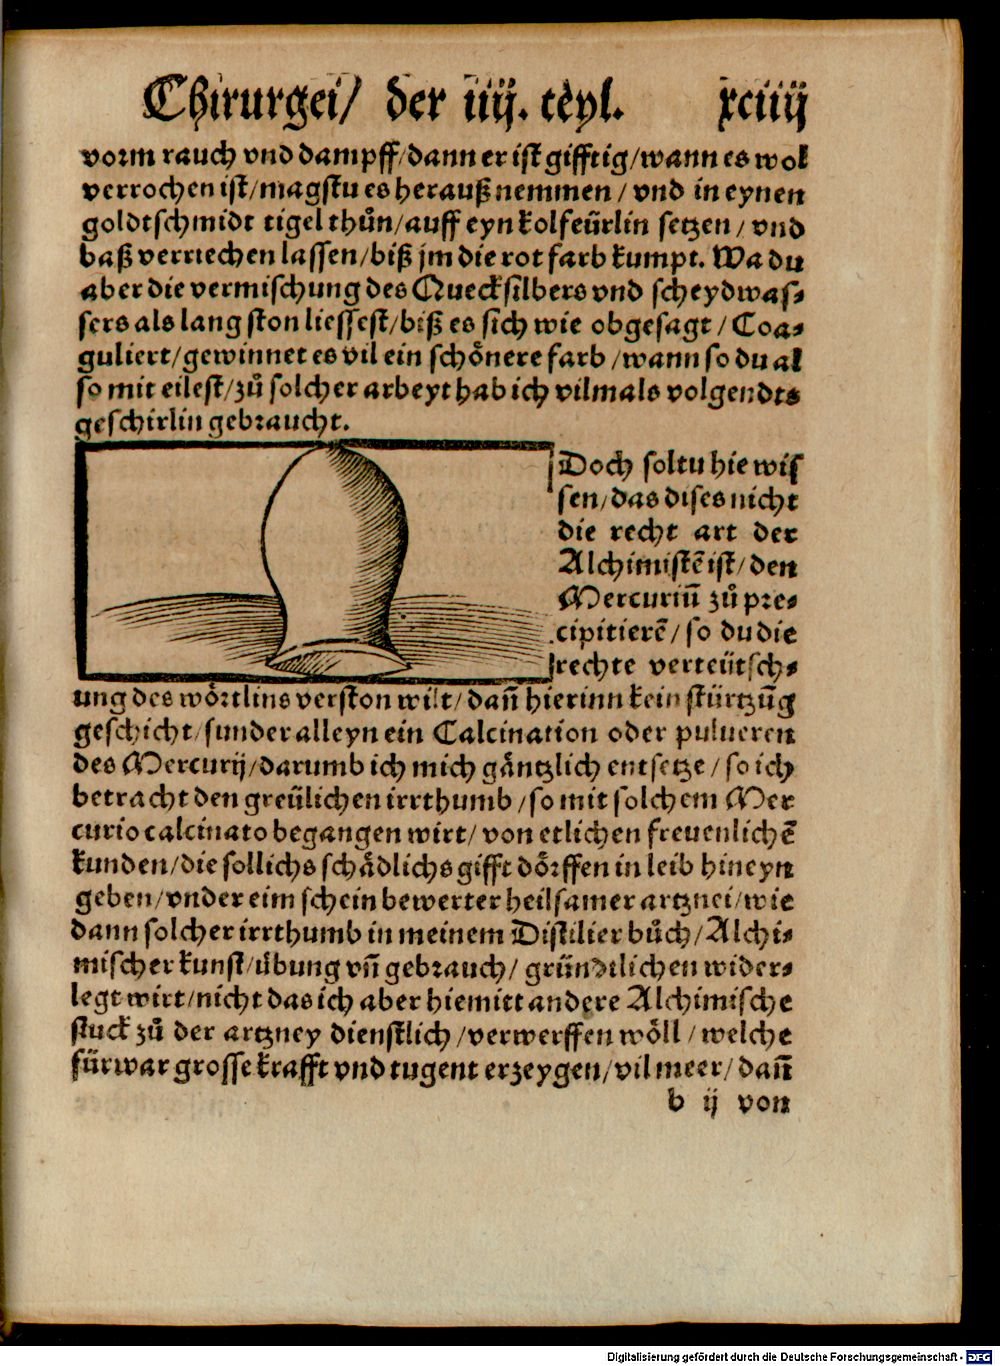 Chirurgei/ der iiij. teyl. xciiij
vorm rauch vnd dampff/dann er ist gifftig/wann es wol
verrochen ist/magstu es herauß nemmen/ vnd in eynen
goldtschmidt tigel thůn/auff eyn kolfeürlin setzen/ vnd
baß verriechen lassen/biß jm die rot farb kumpt. Wa du
aber die vermischung des Quecksilbers vnd scheydwas⸗
sers als lang ston liessest/biß es sich wie obgesagt/Coa⸗
guliert/gewinnet es vil ein schönere farb/wann so du al
so mit eilest/zů solcher arbeyt hab ich vilmals volgendts
geschirlin gebraucht.
Doch soltu hie wis
sen/das dises nicht
die recht art der
Alchimistē ist/den
Mercuriū zů pre⸗
cipitierē/so du die
rechte verteütsch⸗
ung des wörtlins verston wilt/dañ hierinn kein stürtzūg
geschicht/sunder alleyn ein Calcination oder pulueren
des Mercurij/darumb ich mich gäntzlich entsetze/so ich
betracht den greülichen irrthumb/so mit solchem Mer
curio calcinato begangen wirt/von etlichen freuenlichē
kunden/die sollichs schädlichs gifft dörffen in leib hineyn
geben/vnder eim schein bewerter heilsamer artznei/wie
dann solcher irrthumb in meinem Distilier bůch/Alchi⸗
mischer kunst/übung vñ gebrauch/ gründtlichen wider⸗
legt wirt/nicht das ich aber hiemitt andere Alchimische
stuck zů der artzney dienstlich/verwerffen wöll/welche
fürwar grosse krafft vnd tugent erzeygen/vil meer/dañ
b ij von
Digitalisierung gefördert durch die Deutsche Forschungsgemeinschaft - DFG